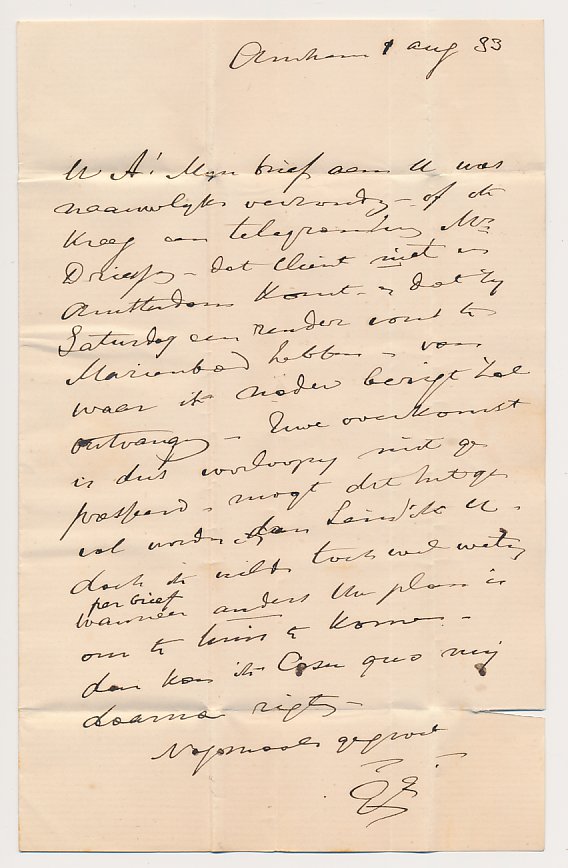 Arnhem 1 aug 83
W A! Mijn brief aan U was
nauwelijks verzonden - of ik
kreeg een telegram van Mr
dat Client niet in
Amsterdam komt - & dat hij
Saturdag een rendez vous te
Marienbad hebben - van
waar ik nader berigt zal
ontvangen - Uwe overkomst
is dus voorloopig niet ge
past - mogt dit het ge
val worden dan sein ik U -
doch ik wilde toch wel weten
per brief
wanneer anders Uw plan is
om te huis te komen -
dan kan ik Casu quo mij
daarna rigten -
Nogmaals gegroet